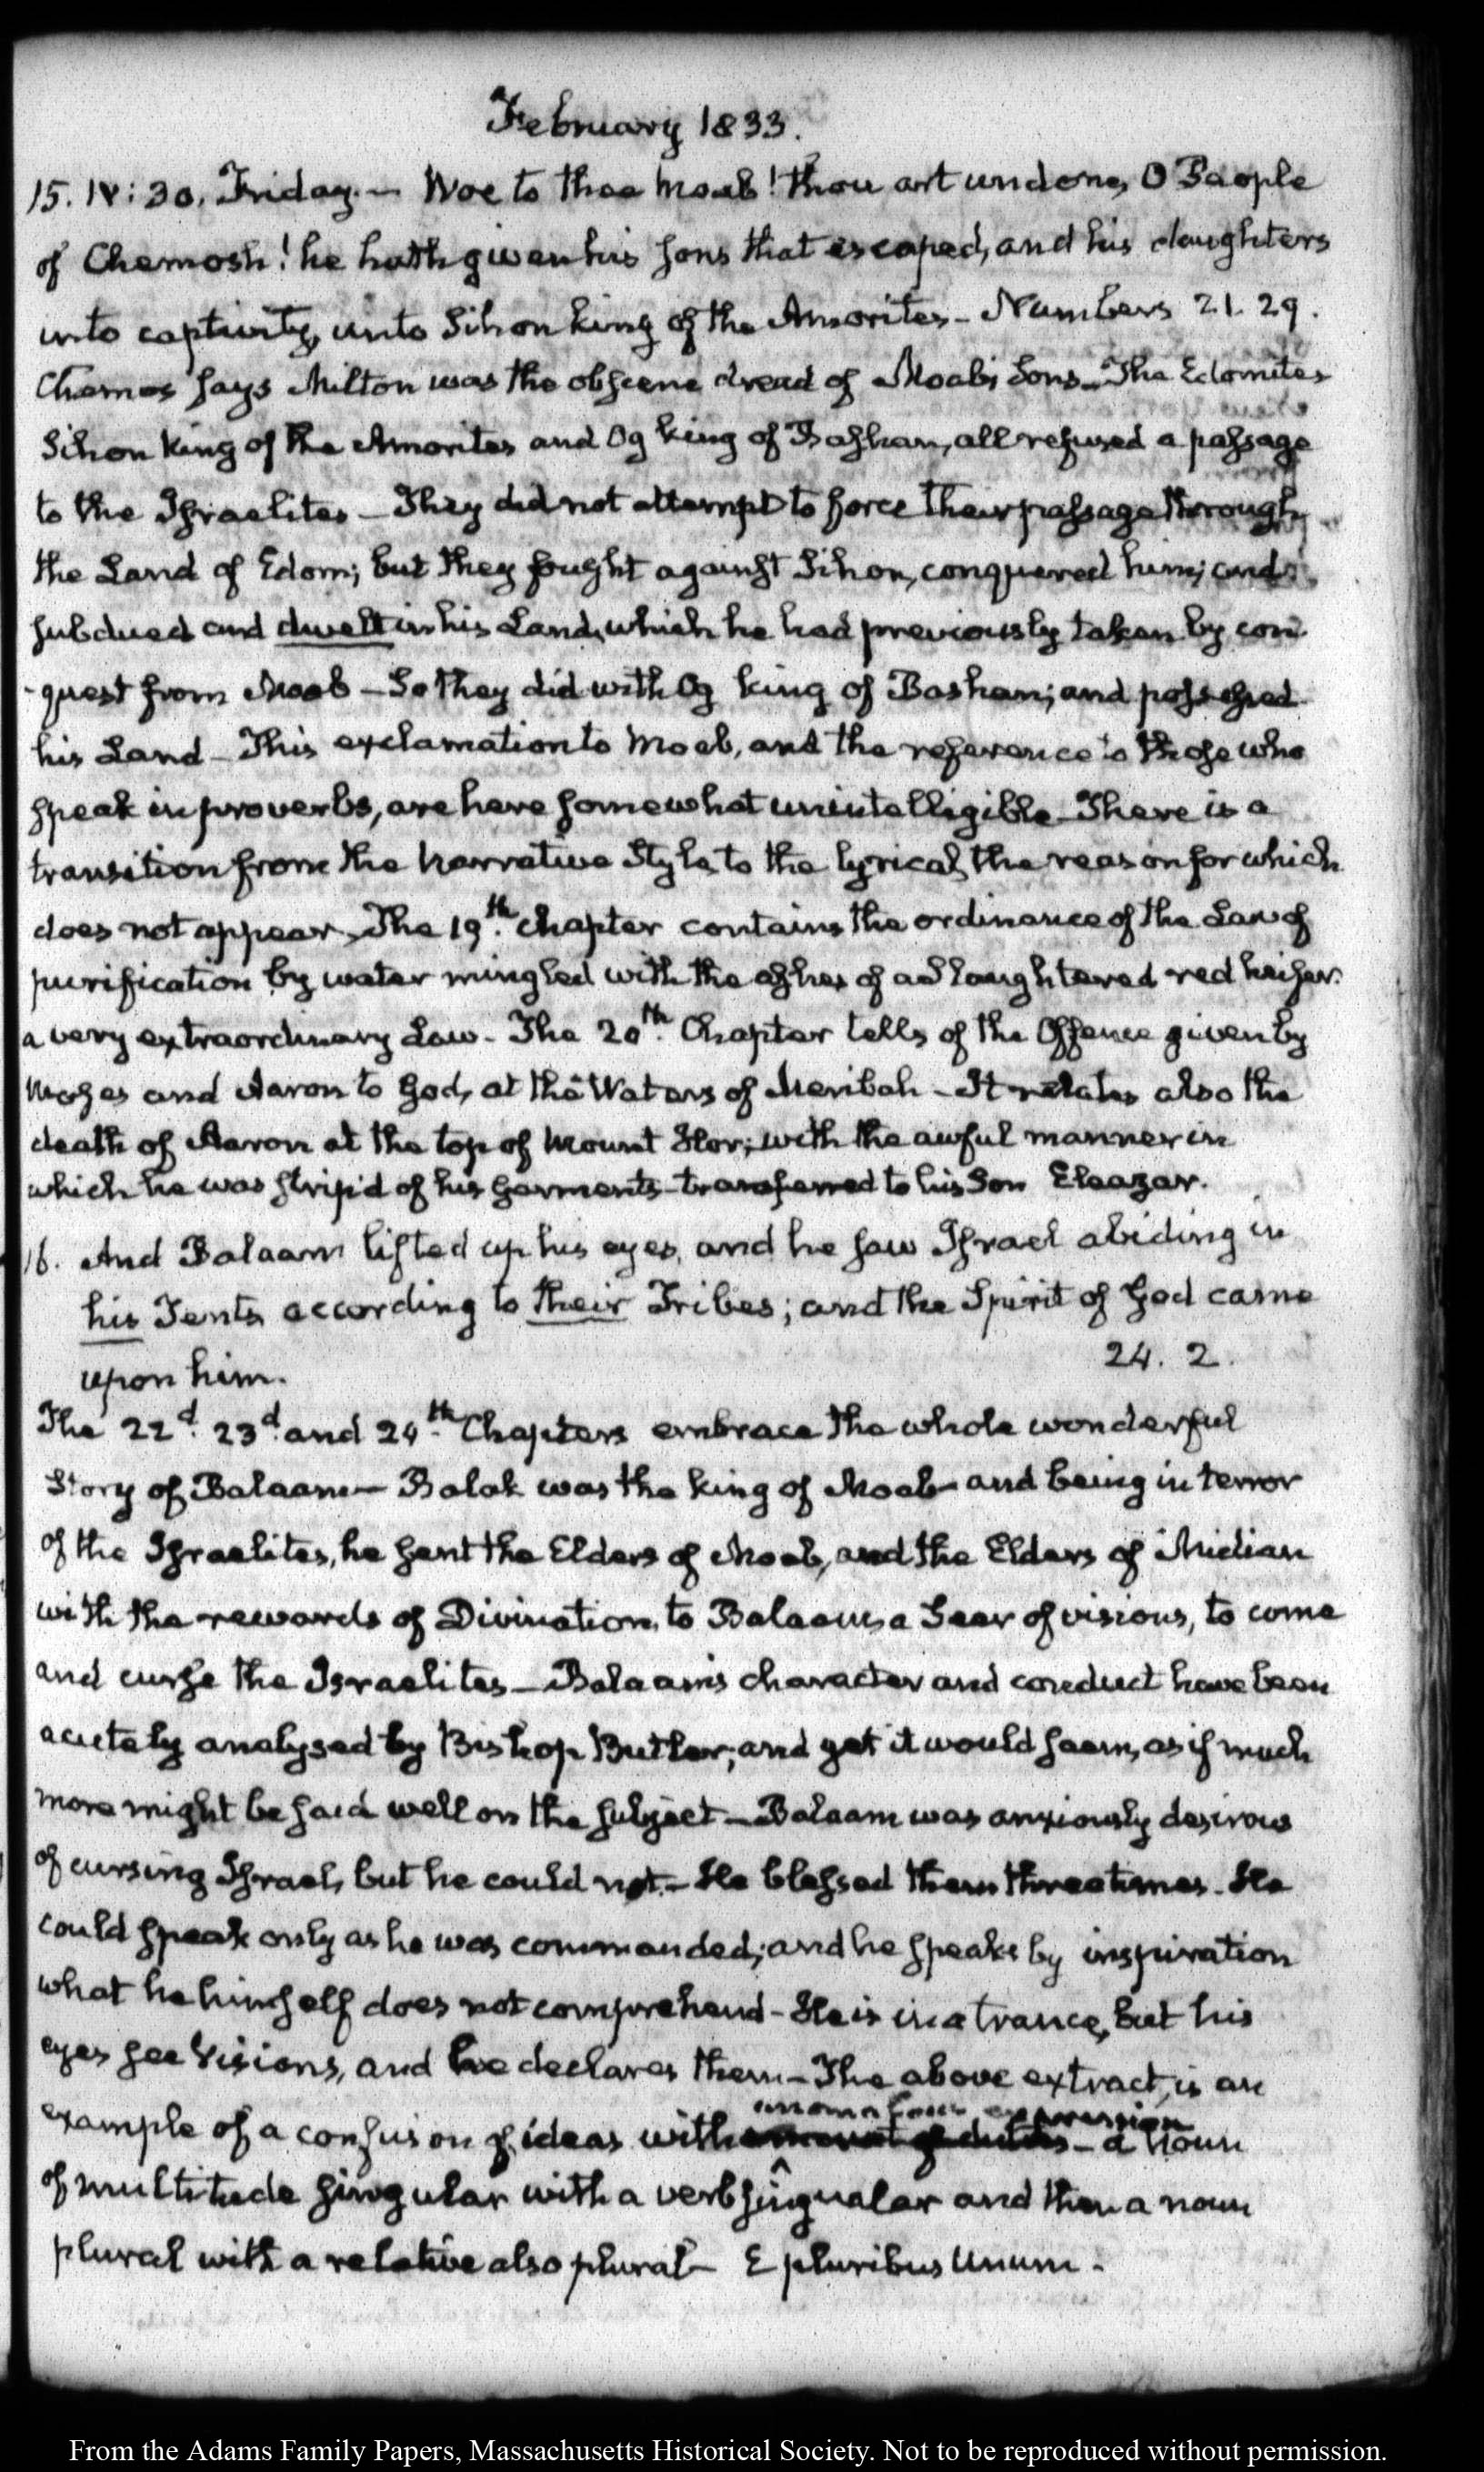 February 1833.
15. IV:30. Friday.— Woe to thee Moab! thou art undone, O People
of Chemosh! he hath given his sons that escaped, and his daughters
into captivity, unto Sihon king of the Amorites— Numbers 21. 29.
Chemos says Milton was the obscene dread of Moab's Sons—The Edomites
Sihon king of the Amorites and Og king of Bashan, all refused a passage
to the Israelites—They did not attempt to force their passage through
the Land of Edom; but they fought against Sihon, conquered him; and
subdued and dwelt in his Land, which he had previously taken by con
-quest from Moab—So they did with Og king of Bashan; and possessed
his Land—This exclamation to Moab, and the reference to those who
speak in proverbs, are here somewhat unintelligible—There is a
transition from the narrative Style to the lyrical, the reason for which
does not appear. The 19th. chapter contains the ordinance of the Law of
purification by water mingled with the ashes of a slaughtered red heifer.
a very extraordinary Law—The 20th. Chapter tells of the Offence given by
Moses and Aaron to God, at the Waters of Meribah—It relates also the
death of Aaron at the top of Mount Hor; with the awful manner in
which he was strip'd of his garments—transferred to his Son Eleazar.
16. And Balaam lifted up his eyes, and he saw Israel abiding in
his Tents according to their Tribes; and the Spirit of God came
24. 2.
upon him.
The 22d. 23d. and 24th. Chapters embrace the whole wonderful
Story of Balaam—Balak was the king of Moab—and being in terror
of the Israelites, he sent the Elders of Moab, and the Elders of Midian
with the rewards of Divination, to Balaam, a Seer of visions, to come
and curse the Israelites—Balaam's character and conduct have been
acutely analysed by Bishop Butler; and yet it would seem, as if much
more might be said well on the subject—Balaam was anxiously desirous
of cursing Israel, but he could not.—He blessed them three times. He
could speak only as he was commanded; and he speaks by inspiration
what he himself does not comprehend—He is in a trance, but his
eyes see Visions, and he declares them—The above extract, is an
anomalous expression
example of a confusion of ideas with — a Noun
of multitude singular with a verb singular and then a noun
plural with a relative also plural— E pluribus Unum.
From the Adams Family Papers, Massachusetts Historical Society. Not to be reproduced without permission.